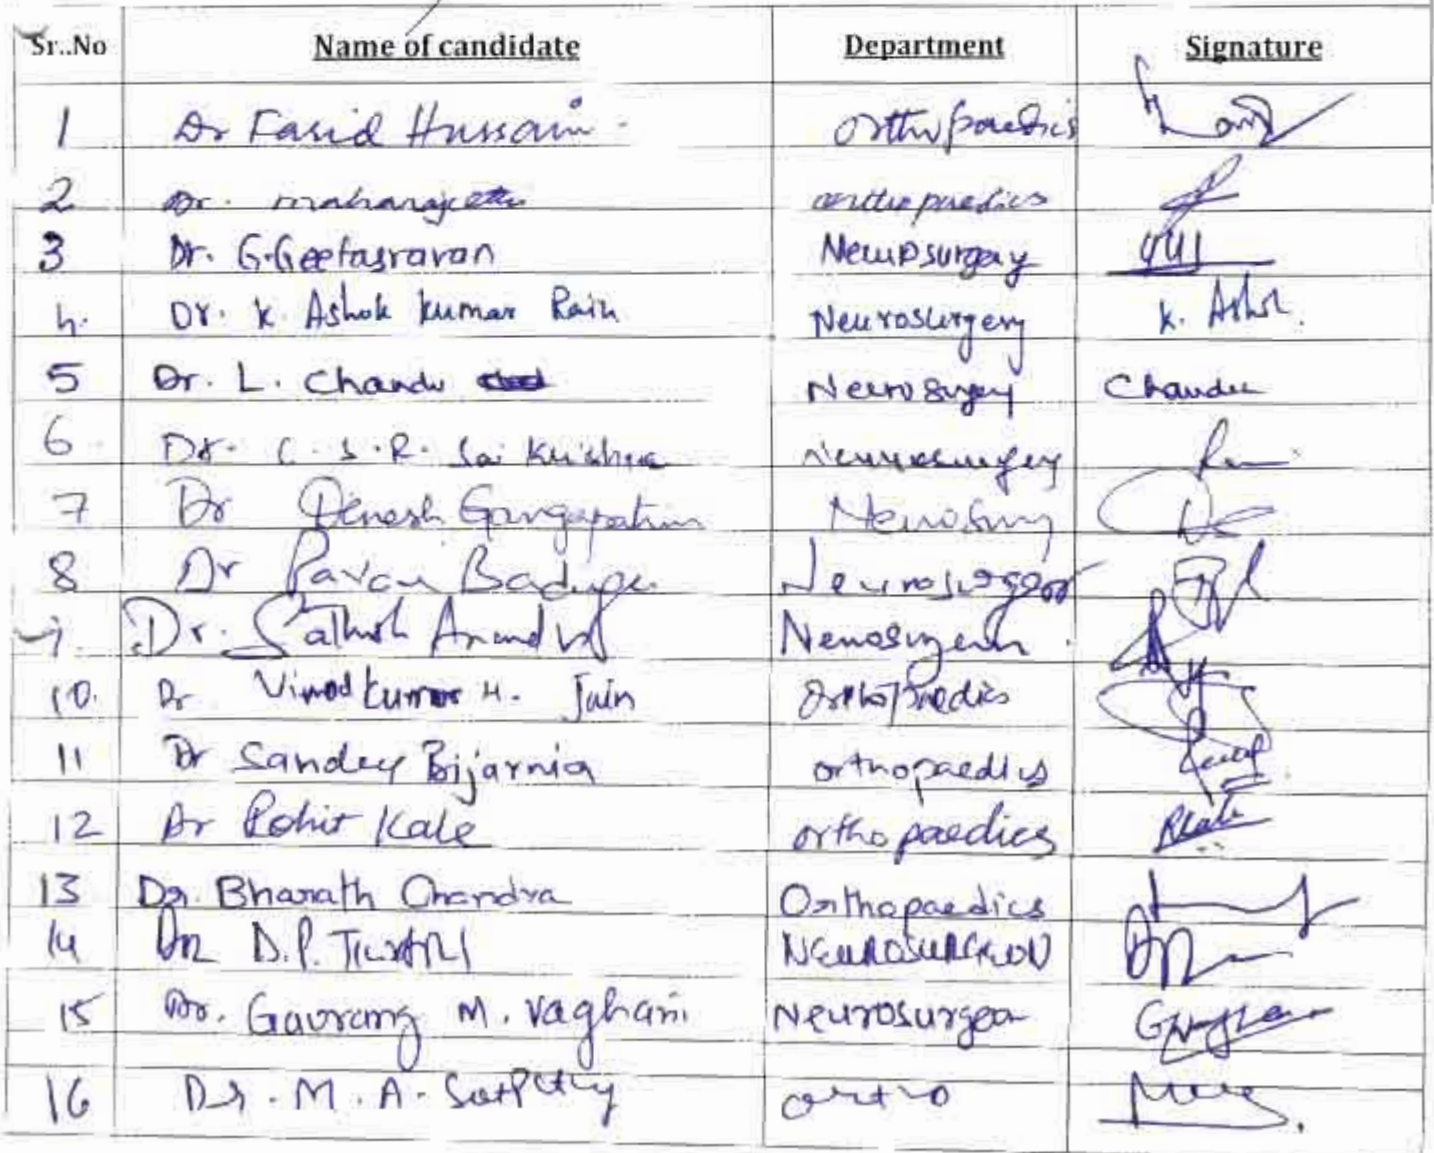 Sr..No Name of candidate Department Signature
1 Dr Farid Hussain. orthopaedics
2 Dr. orthopaedics
3 Dr. G.Geetasravan Neurosurgery
4. Dr. K Ashok kumar Rain Neurosurgery K. Ashok.
5 Dr. L. Chandu Neurosurgery Chandu
6 Dr. C. S. R. Sai Krishna neurosurgery
7 Dr Dinesh Neurosurg
8 Dr Pavan Neurosurgeon
9. Dr. Sathish Anand Neurosurgeon
10. Dr Vinod kumar H. Jain Orthopaedics
11 Dr Sandeep Bijarnia orthopaedics
12 Dr Rohit Kale orthopaedics
13 Dr. Bharath Chandra Orthopaedics
14 Dr D.P. TIWARI NEUROSURGEON
15 Dr. Gaurang M. Vaghani Neurosurgeon
16 Dr. M. A. Satpathy ortho